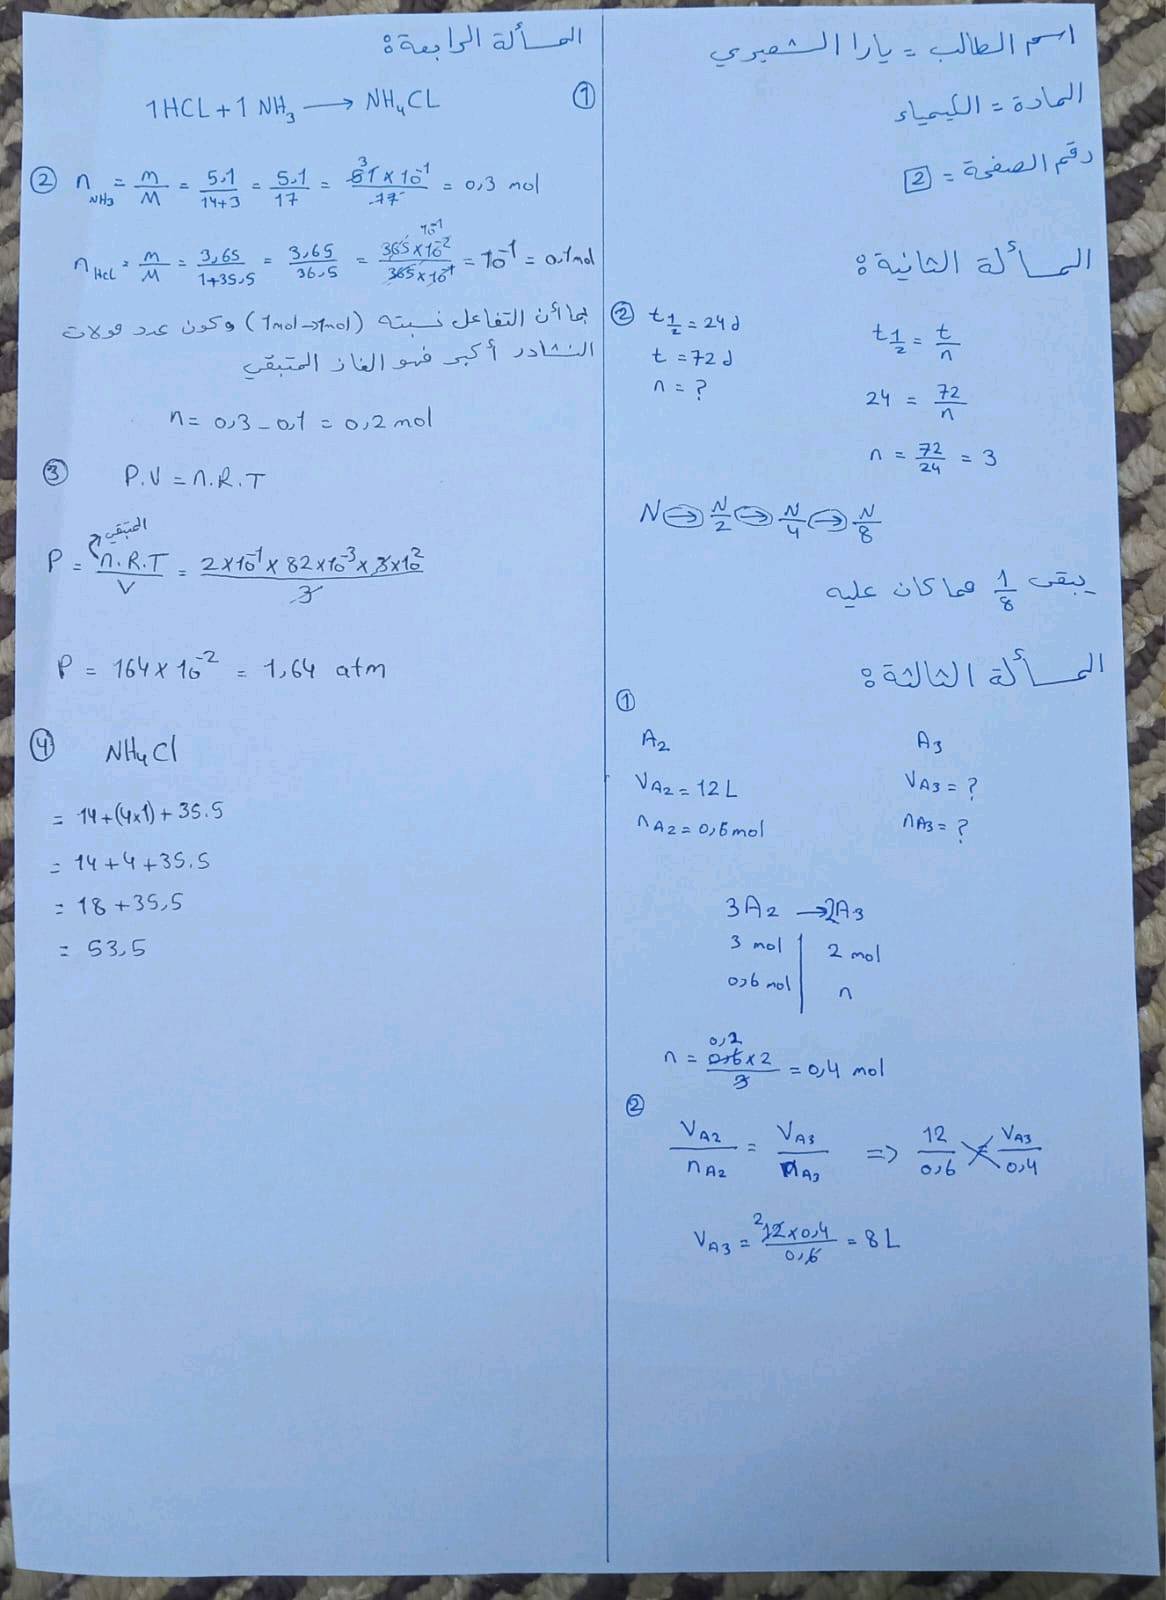 اسم الطالب = يارا الشعيري
المادة = الكيمياء
رقم الصفحة = 2
المسألة الثانية:
② t1/2 = 24 d
t = 72 d
n = ?
t1/2 = t/n
24 = 72/n
n = 72/24 = 3
N → N/2 → N/4 → N/8
يبقى 1/8 مما كان عليه
المسألة الثالثة:
①
A2 A3
VA2 = 12 L VA3 = ?
nA2 = 0,6 mol nA3 = ?
3A2 → 2A3
3 mol | 2 mol
0,6 mol | n
n = 0,2 0,6 × 2 / 3 = 0,4 mol
②
VA2 / nA2 = VA3 / nA3 => 12 / 0,6 = VA3 / 0,4
VA3 = 2 12 × 0,4 / 0,6 = 8 L
المسألة الرابعة:
① 1HCL + 1 NH3 → NH4CL
② nNH3 = m/M = 5.1/14+3 = 5.1/17 = 3 51 × 10^-1 / 17 = 0,3 mol
nHCl = m/M = 3,65/1+35.5 = 3,65/36.5 = 10^-1 365 × 10^-2 / 365 × 10^-1 = 10^-1 = 0,1 mol
بما أن التفاعل نسبته (1mol→1mol) وكون عدد مولات
النشادر أكبر فهو الغاز المتبقي
n = 0,3 - 0,1 = 0,2 mol
③ P.V = n.R.T
المتبقي
P = n.R.T / V = 2 × 10^-1 × 82 × 10^-3 × 3 × 10^2 / 3
P = 164 × 10^-2 = 1,64 atm
④ NH4Cl
= 14 + (4×1) + 35.5
= 14 + 4 + 35.5
= 18 + 35,5
= 53,5